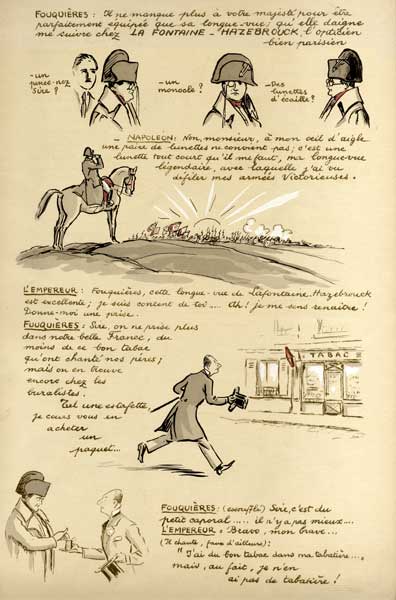 FOUQUIÈRES : Il ne manque plus à votre majesté pour être
parfaitement équipée que sa longue-vue; qu'elle daigne
me suivre chez LA FONTAINE - HAZEBROUCK, l'opticien
bien parisien
- un
pince-nez
Sire ?
- un
monocle ?
- Des
lunettes
d'écaille ?
- NAPOLEON : Non, monsieur, à mon oeil d'aigle
une paire de lunettes ne convient pas; c'est une
lunette tout court qu'il me faut, ma longue-vue
légendaire, avec laquelle j'ai vu
défiler mes armées Victorieuses.
L'EMPEREUR : Fouquières, cette longue-vue de Lafontaine-Hazebrouck
est excellente; je suis content de toi... Ah! je me sens renaître!
Donne-moi une prise.
FOUQUIÈRES : Sire, on ne prise plus
dans notre belle France, du
moins de ce bon tabac
qu'ont chanté nos pères;
mais on en trouve
encore chez les
buralistes.
Tel une estafette,
je cours vous en
acheter
un
paquet...
TABAC
FOUQUIÈRES : (essoufflé) Sire, c'est du
petit caporal..... il n'y a pas mieux....
L'EMPEREUR : Bravo, mon brave...
(Il chante, faux d'ailleurs) :
"J'ai du bon tabac dans ma tabatière....
mais, au fait, je n'en
ai pas de tabatière !